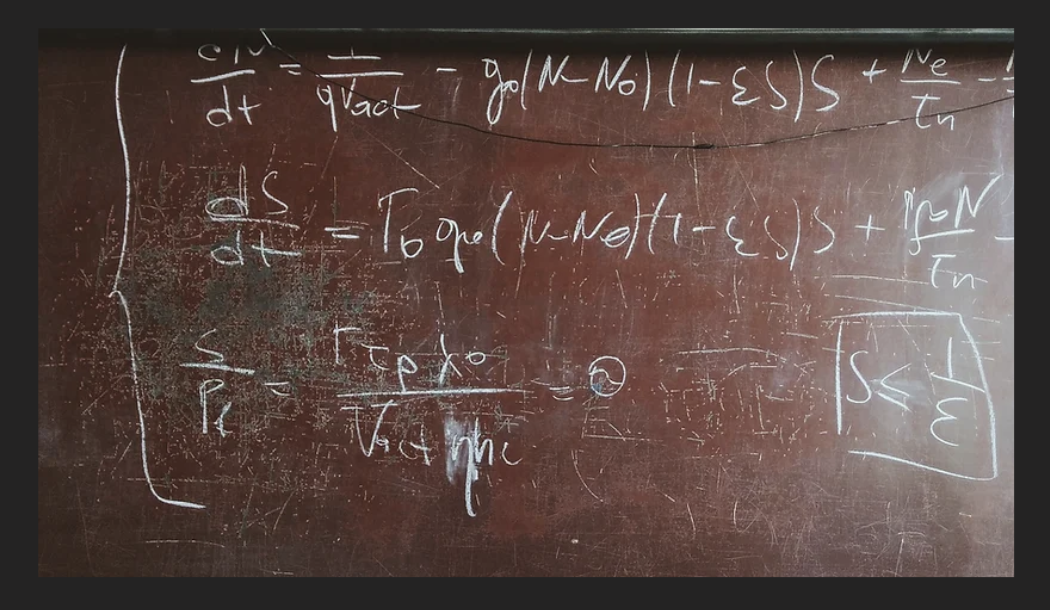 dN/dt = I/(qVact) - g0(N-N0)(1-εS)S + Ne/τn -
dS/dt = Γ0 g0(N-N0)(1-εS)S + N/τn -
S/Pf = Γ τp λ0/(Vact ηhc) =
S ≤ 1/ε